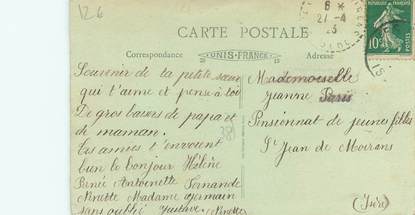 126
CARTE POSTALE
6 *
27-4
23
Correspondance
UNIS-FRANCE
Adresse
10c
POSTES
Souvenir de ta petite sœur
qui t'aime et pense à toi
De gros baisers de papa et
de maman.
38
tes amies t'envoient
bien le bonjour Hélène
Renée Antoinette Fernande
Ninette Madame Germain
sans oublié Gustave Ninette
Mademoiselle
Jeanne Paris
Pensionnat de jeunes filles
St Jean de Moirans
(Isère)